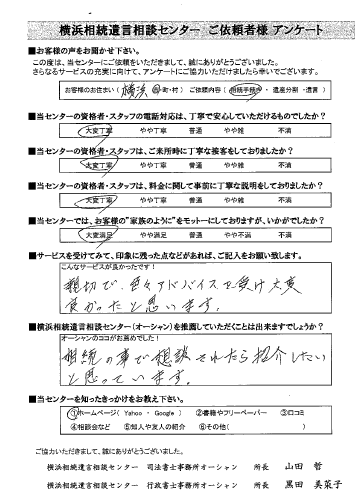 横浜相続遺言相談センター ご依頼者様 アンケート
■お客様の声をお聞かせ下さい。
この度は、当センターにご依頼をいただきまして、誠にありがとうございました。
さらなるサービスの充実に向けて、アンケートにご協力いただけましたら幸いでございます。
お客様のお住まい( 横浜 市・町・村) ご依頼内容( 相続手続き ・ 遺産分割 ・遺言 )
■当センターの資格者・スタッフの電話対応は、丁寧で安心していただけるものでしたか?
大変丁寧 やや丁寧 普通 やや雑 不満
■当センターの資格者・スタッフは、ご来所時に丁寧な接客をしておりましたか?
大変丁寧 やや丁寧 普通 やや雑 不満
■当センターの資格者・スタッフは、料金に関して事前に丁寧な説明をしておりましたか?
大変丁寧 やや丁寧 普通 やや雑 不満
■当センターでは、お客様の"家族のように"をモットーにしておりますが、いかがでしたか?
大変満足 やや満足 普通 やや不満 不満
■サービスを受けてみて、印象に残った点などがあれば、ご記入をお願い致します。
こんなサービスが良かったです!
親切で、色々アドバイスを受け大変
良かったと思います。
■横浜相続遺言相談センター(オーシャン)を推薦していただくことは出来ますでしょうか?
オーシャンのココがお薦めでした!
相続の事で相談されたら紹介したい
と思っています。
■当センターを知ったきっかけをお教え下さい。
①ホームページ( Yahoo ・ Google ) ②書籍やフリーペーパー ③口コミ
④相談会など ⑤知人や友人の紹介 ⑥その他( )
ご協力いただきまして、誠にありがとうございました。
横浜相続遺言相談センター 司法書士事務所オーシャン 所長 山田 哲
横浜相続遺言相談センター 行政書士事務所オーシャン 所長 黒田 美菜子